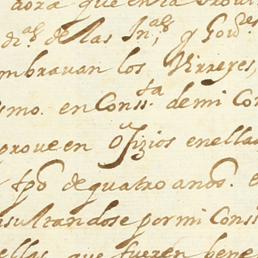 aora que en la Provi
di.as de las Yn.as, q Gov.res
mbravan los Virreyes,
ismo. en Cons.ta de mi Con
proveen Ofizios en ella
tpō de quatro anos. e
nsultandose por mi Consi
ellas que fueren bene